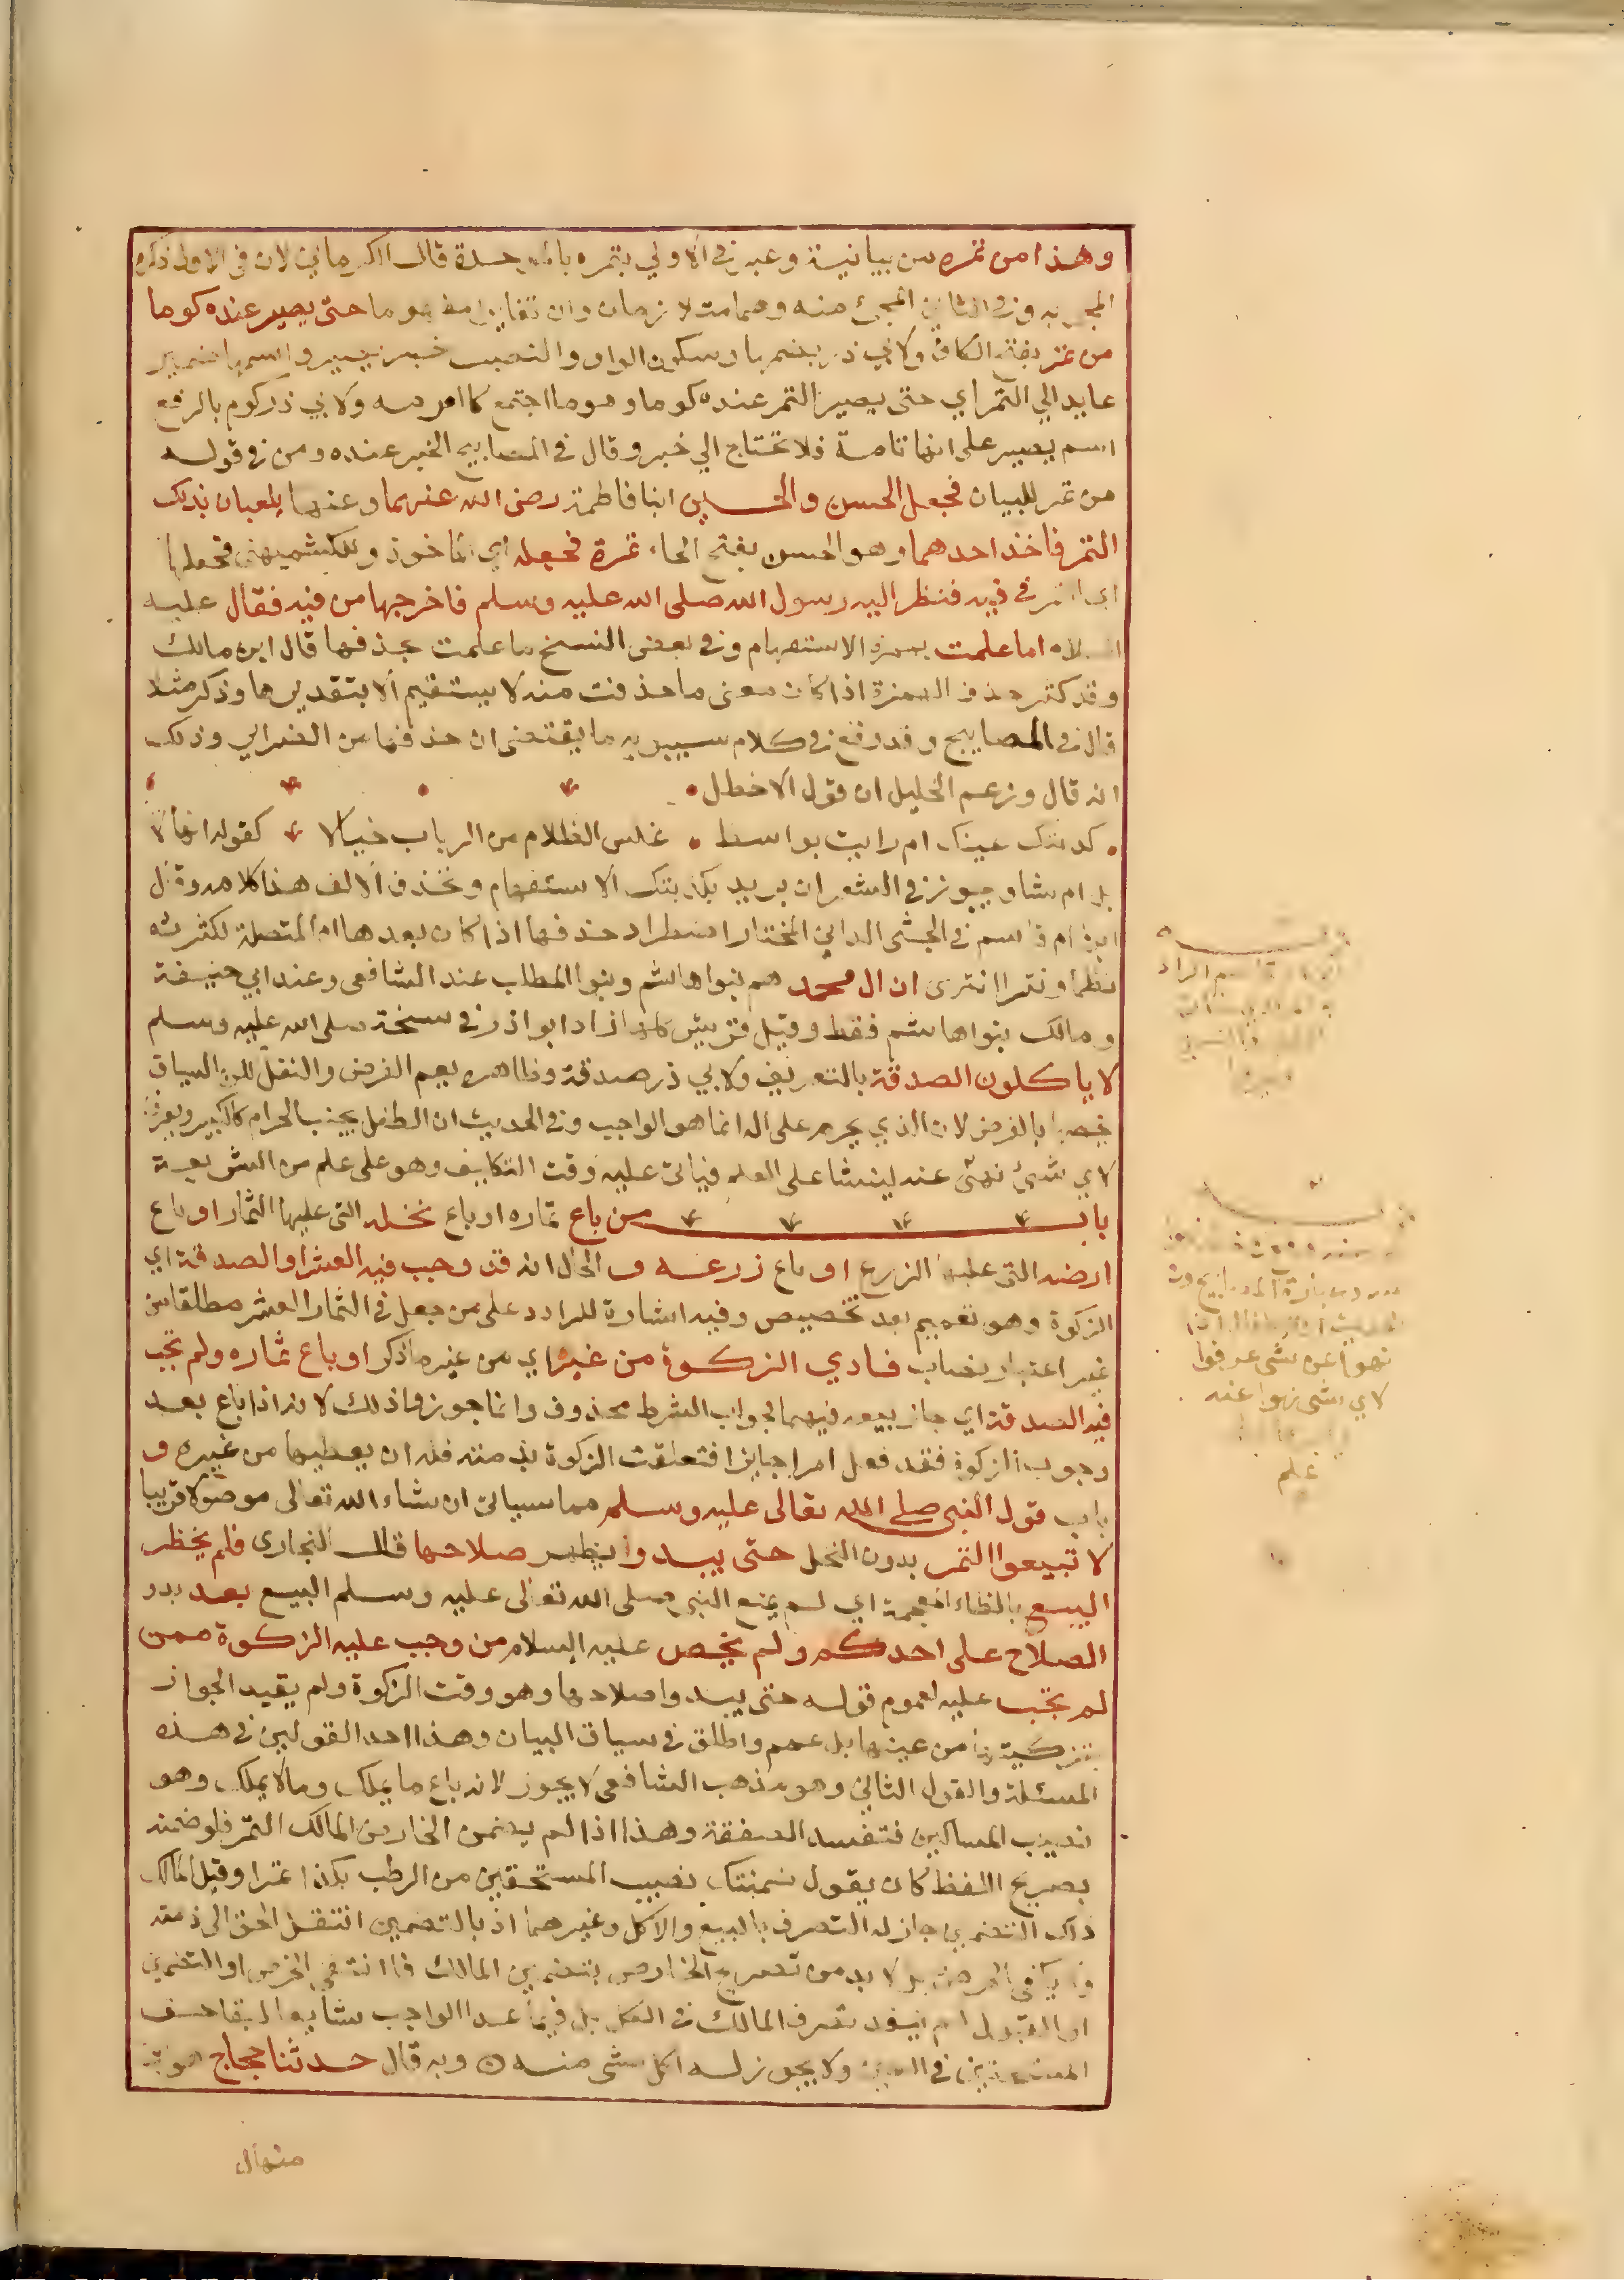 وهذا من تمره من بيانية وعبر في الاولي بتمره بالموحدة قال الكرماني لان في الاول ذكر
المجي به وفي الثاني المجئ منه وهما متلازمان وان تغايرا مفهوما حتى يصير عنده كوما
من تمر بفتح الكاف ولابي ذر بضمها وسكون الواو والنصب خبر يصير واسمها ضمير
عايد الي التمر اي حتى يصير التمر عنده كوما وهو ما اجتمع كالعرمه ولابي ذر كوم بالرفع
اسم يصير على انها تامة فلا تحتاج الي خبر وقال في المصابيح الخبر عنده ومن في قوله
من تمر للبيان فجعل الحسن والحسين ابنا فاطمة رضى الله عنهما وعنها يلعبان بذلك
التمر فاخذ احدهما وهو الحسن بفتح الحاء تمرة فجعله اي الماخوذ وللكشميهنى فجعلها
اي التمرة في فيه فنظر اليه رسول الله صلى الله عليه وسلم فاخرجها من فيه فقال عليه
السلام اما علمت بهمزة الاستفهام وفي بعض النسخ ما علمت بحذفها قال ابن مالك
وقد كثر حذف الهمزة اذا كان معنى ما حذفت منه لا يستقيم الا بتقديرها وذكر مثلا
قال في المصابيح وقد وقع في كلام سيبويه ما يقتضى ان حذفها من الضراير وذلك
انه قال وزعم الخليل ان قول الاخطل
كذبتك عينك ام رايت بواسط • غلس الظلام من الرباب خيالا كقوله انها لا
بل ام شاء ويجوز في الشعر ان يريد بكذبتك الاستفهام وتحذف الالف هذا كلامه وقال
ابن ام قاسم في الجنى الداني المختار اضطراد حذفها اذا كان بعدها ام المتصلة لكثرته
نظما ونثرا انتهى ان ال محمد هم بنوا هاشم وبنوا المطلب عند الشافعى وعند ابي حنيفة
ومالك بنوا هاشم فقط وقيل قريش كلها زاد ابو اذر في نسخة صلى الله عليه وسلم
لا ياكلون الصدقة بالتعريف ولابي ذر صدقة وظاهره يعم الفرض والنفل لكن السياق
يخصها بالفرض لان الذي يحرم على اله انما هو الواجب وفي الحديث ان الطفل يجنب الحرام كالكبير ويعرف
لاي شئ نهى عنه لينشا على العلم فياتى عليه وقت التكليف وهو على علم من الشريعة
باب من باع ثماره او باع نخله التى عليها الثمار او باع
ارضه التى عليها الزرع او باع زرعه و الحال انه قد وجب فيه العشر او الصدقة اي
الزكوة وهو تعميم بعد تخصيص وفيه اشارة للرد على من جعل في الثمار العشر مطلقا من
غير اعتبار نصاب فادي الزكوة من غيره اي من غير ما ذكر او باع ثماره ولم تجب
فيه الصدقة اي جاز بيعه فيهما فجواب الشرط محذوف وانما جوزوا ذلك لانه اذا باع بعد
وجوب الزكوة فقد فعل امرا جايزا فتعلقت الزكوة بذمته فله ان يعطيها من غيره و
باب قول النبي صلى الله تعالى عليه وسلم مما سياتى ان شاء الله تعالى موصولا قريبا
لا تبيعوا التمر بدون النخل حتى يبدوا يظهر صلاحها قال البخارى فلم يحظر
البيع بالظاء المعجمة اي لم يمنع النبي صلى الله تعالى عليه وسلم البيع بعد بدو
الصلاح على احدكم ولم يخص عليه السلام من وجب عليه الزكوة ممن
لم تجب عليه لعموم قوله حتى يبدوا صلاحها وهو وقت الزكوة ولم يقيد الجواز
بتزكيتها من عينها بل عمم واطلق في سياق البيان وهذا احد القولين في هذه
المسئلة والقول الثاني وهو مذهب الشافعى لا يجوز لانه باع ما يملك وما لا يملك وهو
نصيب المساكين فتفسد الصفقة وهذا اذا لم يضمن الخارص المالك التمر فلو ضمنه
بصريح اللفظ كان يقول ضمنتك نصيب المستحقين من الرطب بكذا تمرا وقبل المالك
ذلك التضمين جاز له التصرف بالبيع والاكل وغيرهما اذ بالتضمين انتقل الحق الى ذمته
ولا يكفي الخرص بل لا بد من تصريح الخارص بتضمين المالك فان انتفى الخرص او التضمين
او القبول لم ينفذ تصرف المالك في الكل بل فيما عدا الواجب شايعا لبقا حق
المستحقين في العين ولا يجوز له اكل شى منه وبه قال حدثنا حجاج هو بن
نهوا عن شى عرفوا
لاي شى نهوا عنه
علم
منهال